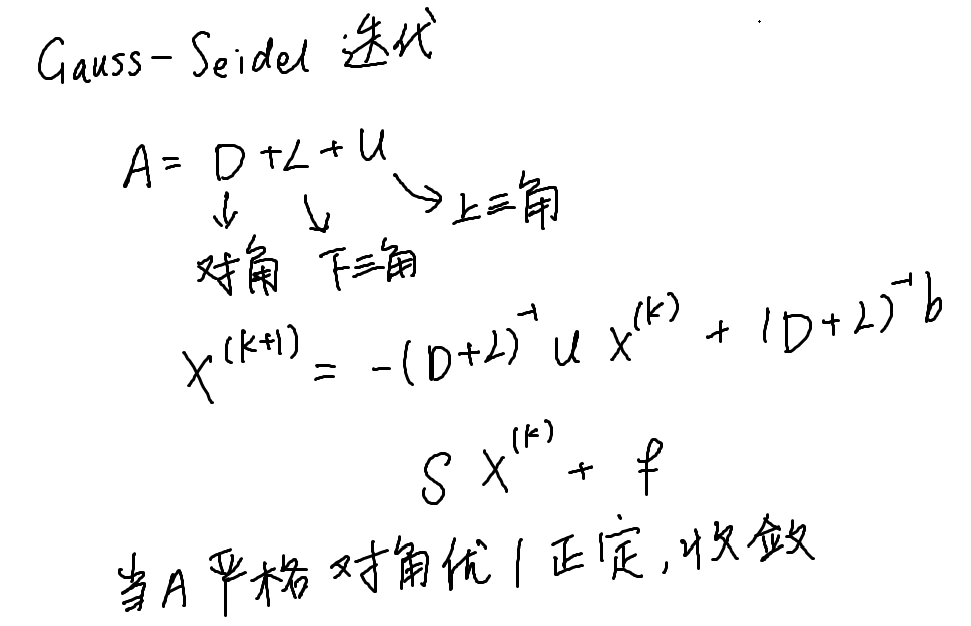 Gauss-Seidel 迭代
A = D + L + U
↓ ↘ → 上三角
对角 下三角
X^(k+1) = -(D+L)^-1 U X^(k) + (D+L)^-1 b
S X^(k) + f
当A严格对角优/正定,收敛